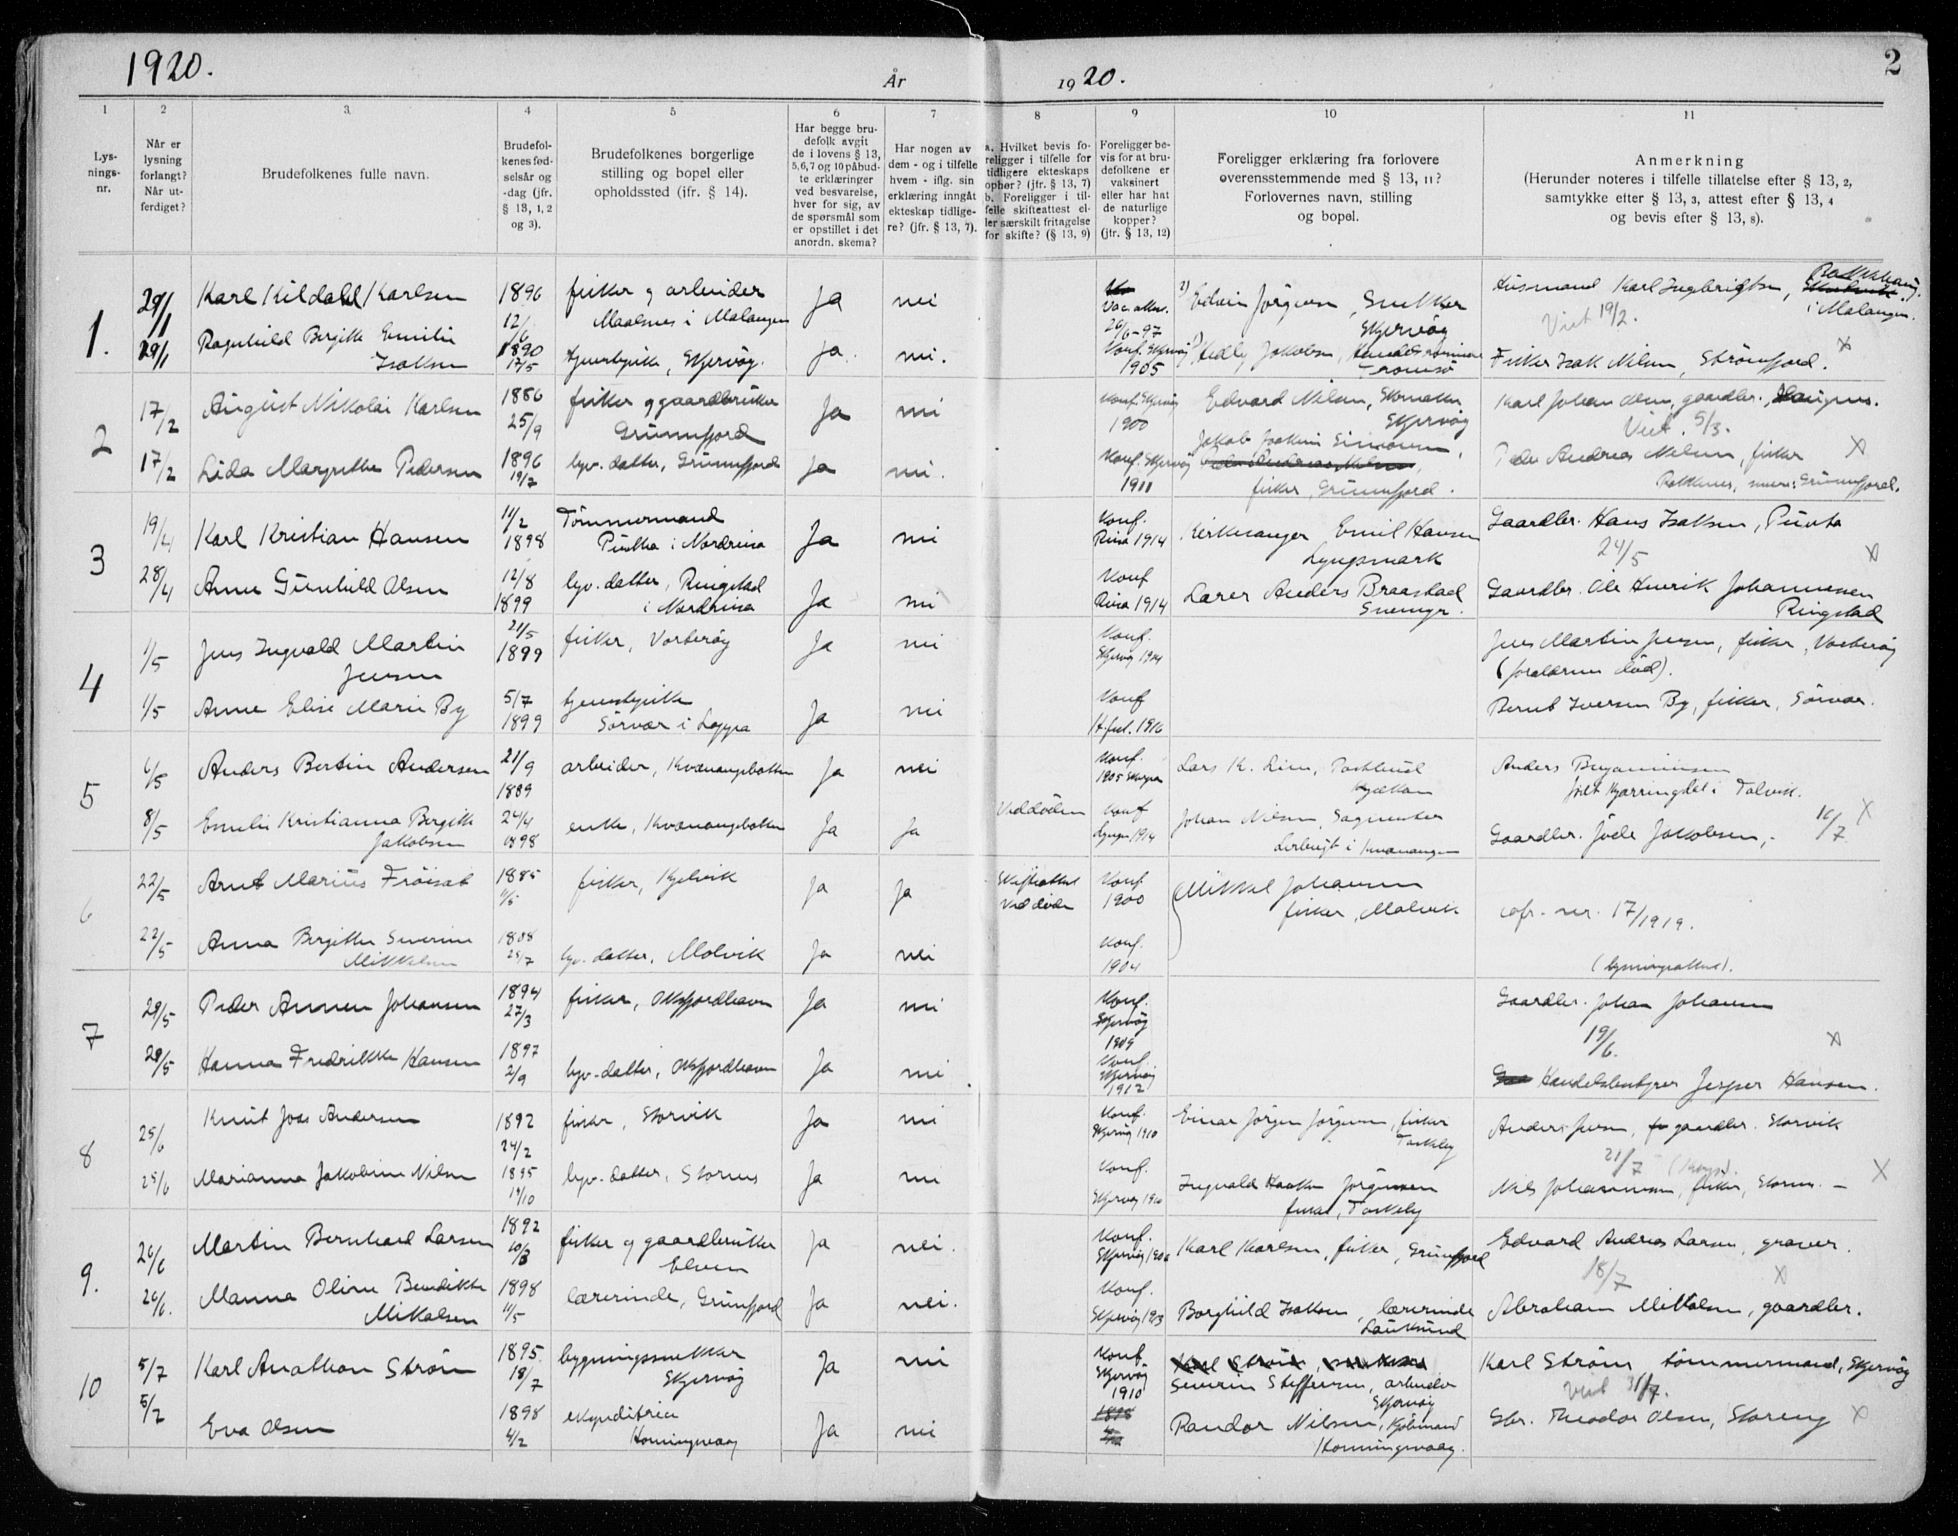 1920.
År
1920.
2
1 2 3. 4 5 6 7 8 9 10 11
Lys-
nings-
nr.
Når er
lysning
forlangt?
Når ut-
ferdiget?
Brudefolkenes fulle navn.
Brudefol-
kenes fød-
selsår og
-dag (jfr.
§ 13, 1, 2
og 3).
Brudefolkenes borgerlige
stilling og bopel eller
opholdssted (ifr. § 14).
Har begge bru-
defolk avgit
de i lovens § 13,
5,6,7 og 10 påbud-
te erklæringer
ved besvarelse,
hver for sig, av
de spørsmål som
er opstillet i det
anordn. skema?
Har nogen av
dem - og i tilfelle
hvem - iflg. sin
erklæring inngåt
ekteskap tidlige-
re? (jfr. § 13, 7).
a. Hvilket bevis fo-
religger i tilfelle for
tidligere ekteskaps
ophør? (jfr. § 13, 7)
b. Foreligger i til-
felle skifteattest el-
ler særskilt fritagelse
for skifte? (§ 13, 9)
Foreligger be-
vis for at bru-
defolkene er
vaksinert
eller har hat
de naturlige
kopper?
(jfr. § 13, 12)
Foreligger erklæring fra forlovere
overensstemmende med § 13, 11?
Forlovernes navn, stilling
og bopel.
Anmerkning
(Herunder noteres i tilfelle tillatelse efter § 13, 2,
samtykke efter § 13, 3, attest efter § 13, 4
og bevis efter § 13, 8).
1. 29/1 Karl Kildahl Karlsen 1896 12/6 fisker og arbeider
Maalsnes i Malangen Ja nei Vac. attest.
26/6-97 2) Edvin Jørgensen, Snekker
Skjervøy Husmand Karl Ingebrigtsen,
i Malangen.
Viet 19/2.
29/1 Ragnhild Birgitte Emilie
Isaksen 1890 17/5 tjenestepike, Skjervøy. Ja. nei. Konf. Skjervøy
1905 Hedly Jakobsen,
Tromsø Fisker Isak Nilsen, Strømfjord. X
2 17/2 August Nikolai Karlsen 1886 25/9 fisker og gaardbruker
Grunnfjord Ja nei Konf. Skjervøy
1900 Edvard Nilsen, Skomaker
Skjervøy Karl Johan Olsen, gaardbr.,
Viet. 5/3.
17/2 Lida Margrethe Pedersen 1896 19/7 hjv. datter, Grunnfjord Ja nei. Konf. Skjervøy
1911 Jakob Joakim Simonsen,
fisker, Grunnfjord. Peder Andreas Nilsen, fisker X
Grunnfjord.
3 19/4 Karl Kristian Hansen 11/2 1898 Tømmermand
Punta i Nordreisa Ja nei Konf.
Reisa 1914 Kirkesanger Emil Hansen
Lyngsmark Gaardbr. Hans Isaksen, Punta
24/5 X
28/4 Anne Gunhild Olsen 12/8 1899 hjv. datter, Ringstad
i Nordreisa Ja nei Konf
Reisa 1914 Lærer Anders Braastad
Gaardbr. Ole Henrik Johannessen
Ringstad
4 1/5 Jens Ingvald Martin
Jensen 21/5 1899 fisker, Vorterøy Ja nei Konf.
Skjervøy 1914 Jens Martin Jensen, fisker, Vorterøy
(forældrene død).
1/5 Anne Elise Marie By 5/7 1899 tjenestepike
Sørvær i Loppa Ja nei Konf
Bernt Iversen By, fisker, Sørvær.
5 6/5 Anders Bertin Andersen 21/9 1889 arbeider, Kvænangsbotten Ja nei Konf.
1905 Lars K. Rim,
Kjækan Anders Benjaminsen
født Kjerringdal i Talvik.
8/5 Emilie Kristianna Bergitte
Jakobsen 24/4 1898 enke, Kvænangsbotten Ja Ja Ved døden Konf
Lyngen 1914 Johan Nilsen, Sagmester
i Kvænangen Gaardbr. Joel Jakobsen, - 16/7 X
6 22/5 Arnt Marius Frøiset 1885 fisker, Kjelvik Ja Ja Skifteattest
Ved døden Konf.
1900 Mikkel Johansen
fisker, Molvik cfr. nr. 17/1919.
22/5 Anna Birgitte Severine
Mikkelsen 1888 25/7 hjv. datter, Molvik Ja nei Konf.
1904 (lysningsattest).
7 29/5 Peder Annæus Johansen 1894 27/3 fisker, Oksfjordhavn Ja nei Konf.
Skjervøy
1909 Gaardbr. Johan Johansen
19/6. X
29/5 Hanna Fredrikke Hansen 1897 2/9 hjv. datter, Oksfjordhavn Ja nei. Konf.
Skjervøy
1912 Handelsbestyrer Jesper Hansen.
8 25/6 Knut Joas Andersen 1892 24/2 fisker, Storvik Ja nei Konf.
Skjervøy 1910 Einar Jørgen Jørgensen, fisker
Taskeby Anders Jensen, gaardbr. Storvik
21/7
25/6 Marianna Jakobine Nilsen 1895 19/10 hjv. datter, Stornes Ja nei Konf.
Skjervøy 1910 Ingvald Haakon Jørgensen
fisker, Taskeby Nils Johannessen, fisker, Stornes. - X
9. 26/6 Martin Bernhard Larsen 1892 10/3 fisker og gaardbruker
Elven Ja nei. Konf.
Skjervøy 1906 Karl Karlsen, fisker, Grunnfjord Edvard Andreas Larsen, graver.
18/7 X
26/6. Manna Oline Bendikte
Mikalsen 1898 11/5 lærerinde, Grunnfjord Ja nei. Konf.
Skjervøy 1913 Borghild Isaksen, lærerinde
Lauksund Abraham Mikkalsen, gaardbr.
10 5/7 Karl Anathon Strøm 1895. 18/7 bygningssnekker
Skjervøy Ja nei Konf.
Skjervøy
1910 Karl Strøm, snekker
Severin Steffensen, arbeider
Skjervøy Karl Strøm, tømmermand, Skjervøy
Viet 31/7.
5/7 Eva Olsen 1898 4/2 ekspeditrice
Honningsvaag Ja nei 1898 Randor Nilsen, Kjøbmand
Honningsvaag. Gbr. Theodor Olsen, Storeng X